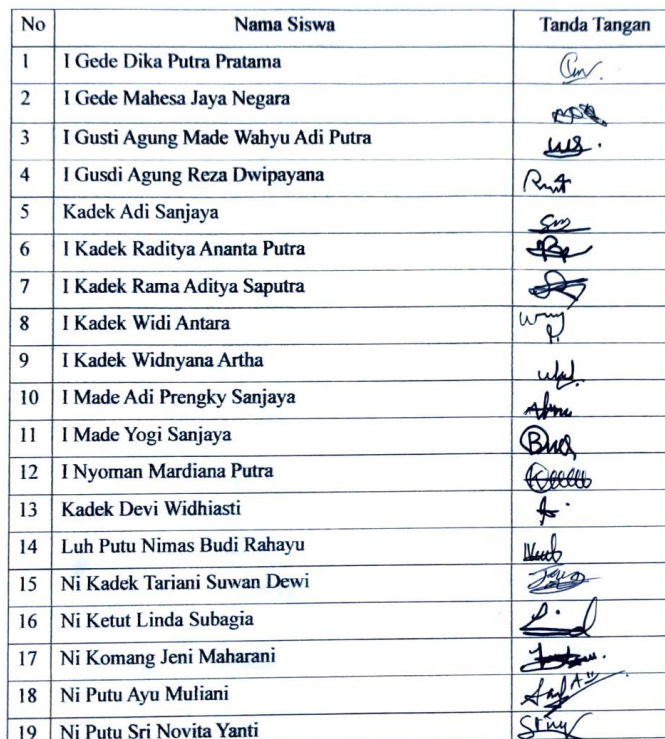 No Nama Siswa Tanda Tangan
1 I Gede Dika Putra Pratama
2 I Gede Mahesa Jaya Negara
3 I Gusti Agung Made Wahyu Adi Putra
4 I Gusdi Agung Reza Dwipayana
5 Kadek Adi Sanjaya
6 I Kadek Raditya Ananta Putra
7 I Kadek Rama Aditya Saputra
8 I Kadek Widi Antara
9 I Kadek Widnyana Artha
10 I Made Adi Prengky Sanjaya
11 I Made Yogi Sanjaya
12 I Nyoman Mardiana Putra
13 Kadek Devi Widhiasti
14 Luh Putu Nimas Budi Rahayu
15 Ni Kadek Tariani Suwan Dewi
16 Ni Ketut Linda Subagia
17 Ni Komang Jeni Maharani
18 Ni Putu Ayu Muliani
19 Ni Putu Sri Novita Yanti